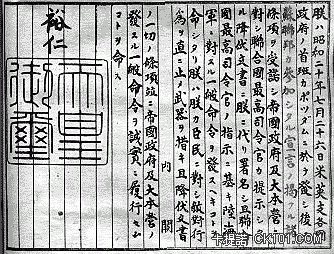 朕ハ昭和二十年七月二十六日米英支各
政府ノ首班カポツダムニ於テ發シ後ニ
蘇聯邦カ參加シタル宣言ノ掲クル諸
條項ヲ受諾シ帝國政府及大本營ニ
對シ聯合國最高司令官カ提示シタ
ル降伏文書ニ朕ニ代リ署名シ且聯合
國最高司令官ノ指示ニ基キ陸海
軍ニ對スル一般命令ヲ發スヘキコトヲ
命シタリ朕ハ朕カ臣民ニ對シ敵對行
為ヲ直ニ止メ武器ヲ措キ且降伏文書
內閣
ノ一切ノ條項竝ニ帝國政府及大本營ノ
發スル一般命令ヲ誠實ニ履行セム
コトヲ命ス
裕仁
天皇
御璽
卡提諾 CK101.com